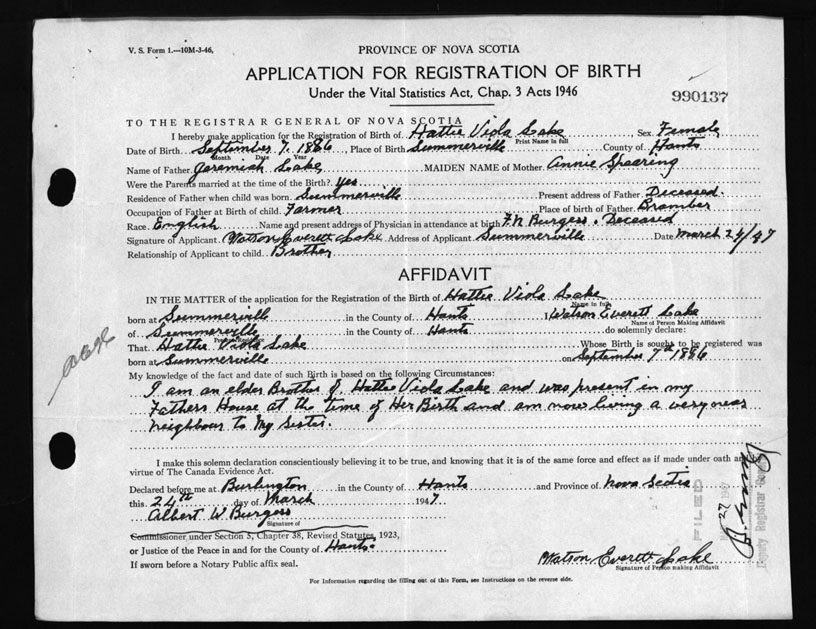 V. S. Form 1.—10M-3-46,
PROVINCE OF NOVA SCOTIA
APPLICATION FOR REGISTRATION OF BIRTH
Under the Vital Statistics Act, Chap. 3 Acts 1946
990137
TO THE REGISTRAR GENERAL OF NOVA SCOTIA
I hereby make application for the Registration of Birth of Hattie Viola Lake Sex Female
Print Name in full
Date of Birth September 7, 1886, Place of Birth Summerville County of Hants
Month Date Year
Name of Father Jeremiah Lake MAIDEN NAME of Mother Annie Spearing
Were the Parents married at the time of the Birth? Yes
Residence of Father when child was born Summerville Present address of Father Deceased
Occupation of Father at Birth of child. Farmer Place of birth of Father Bramber
Race English Name and present address of Physician in attendance at birth F.N Burgess. Deceased
Signature of Applicant Watson Everett Lake Address of Applicant Summerville Date March 24/47
Relationship of Applicant to child. Brother
AFFIDAVIT
IN THE MATTER of the application for the Registration of the Birth of Hattie Viola Lake
Name in full
born at Summerville in the County of Hants I Watson Everett Lake
Name of Person Making Affidavit
of Summerville in the County of Hants do solemnly declare:
That Hattie Viola Lake Whose Birth is sought to be registered was
born at Summerville on September 7th 1886
My knowledge of the fact and date of such Birth is based on the following Circumstances:
I am an elder Brother of Hattie Viola Lake and was present in my
Fathers House at the time of Her Birth and am now living a very near
neighbour to My Sister.
I make this solemn declaration conscientiously believing it to be true, and knowing that it is of the same force and effect as if made under oath and by
virtue of The Canada Evidence Act.
Declared before me at Burlington in the County of Hants and Province of Nova Scotia
this 24th day of March 1947
Albert W Burgess
Signature of
Commissioner under Section 5, Chapter 38, Revised Statutes, 1923,
or Justice of the Peace in and for the County of Hants
If sworn before a Notary Public affix seal.
Watson Everett Lake
Signature of Person making Affidavit
FILED
Deputy Registrar
For Information regarding the filling out of this Form, see Instructions on the reverse side.